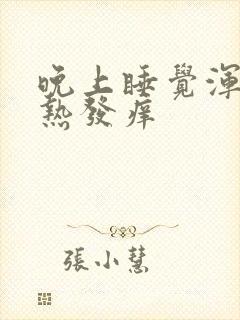 晚上睡覺渾
熱發痒
張小慧